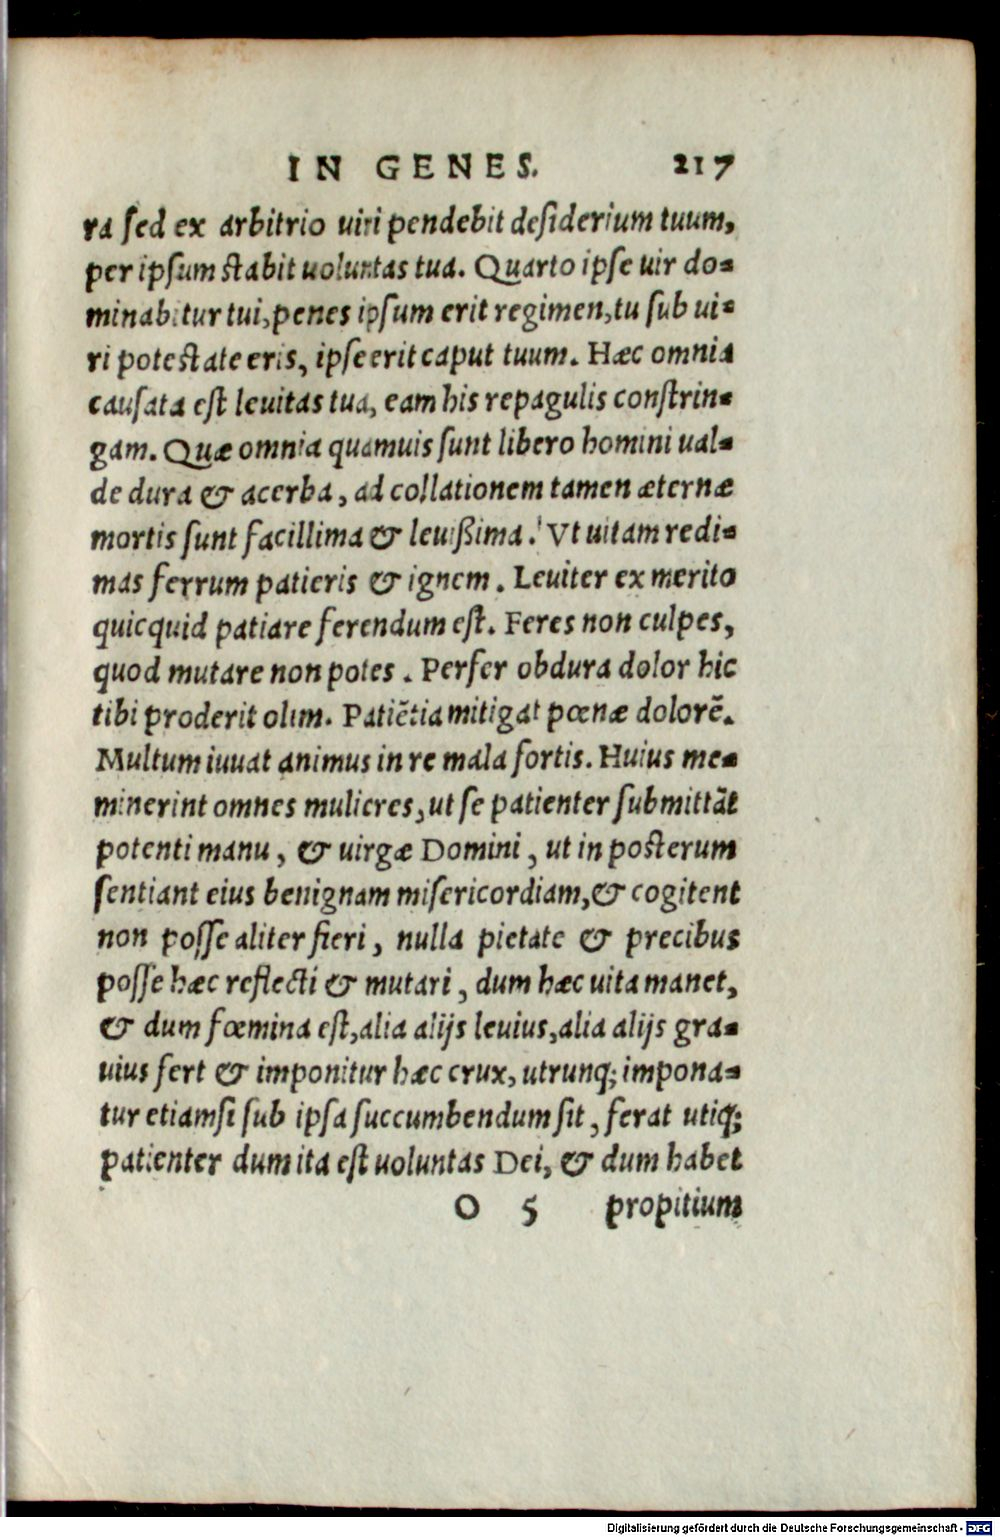 IN GENES. 217
ra sed ex arbitrio uiri pendebit desiderium tuum,
per ipsum stabit uoluntas tua. Quarto ipse uir do-
minabitur tui, penes ipsum erit regimen, tu sub ui-
ri potestate eris, ipse erit caput tuum. Hæc omnia
causata est leuitas tua, eam his repagulis constrin-
gam. Quæ omnia quamuis sunt libero homini ual-
de dura & acerba, ad collationem tamen æternæ
mortis sunt facillima & leuißima. Vt uitam redi-
mas ferrum patieris & ignem. Leuiter ex merito
quicquid patiare ferendum est. Feres non culpes,
quod mutare non potes. Perfer obdura dolor hic
tibi proderit olim. Patiẽtia mitigat pœnæ dolorẽ.
Multum iuuat animus in re mala fortis. Huius me-
minerint omnes mulieres, ut se patienter submittãt
potenti manu, & uirgæ Domini, ut in posterum
sentiant eius benignam misericordiam, & cogitent
non posse aliter fieri, nulla pietate & precibus
posse hæc reflecti & mutari, dum hæc uita manet,
& dum fœmina est, alia alijs leuius, alia alijs gra-
uius fert & imponitur hæc crux, utrunq; impona-
tur etiamsi sub ipsa succumbendum sit, ferat utiq;
patienter dum ita est uoluntas Dei, & dum habet
O 5 propitium
Digitalisierung gefördert durch die Deutsche Forschungsgemeinschaft - DFG